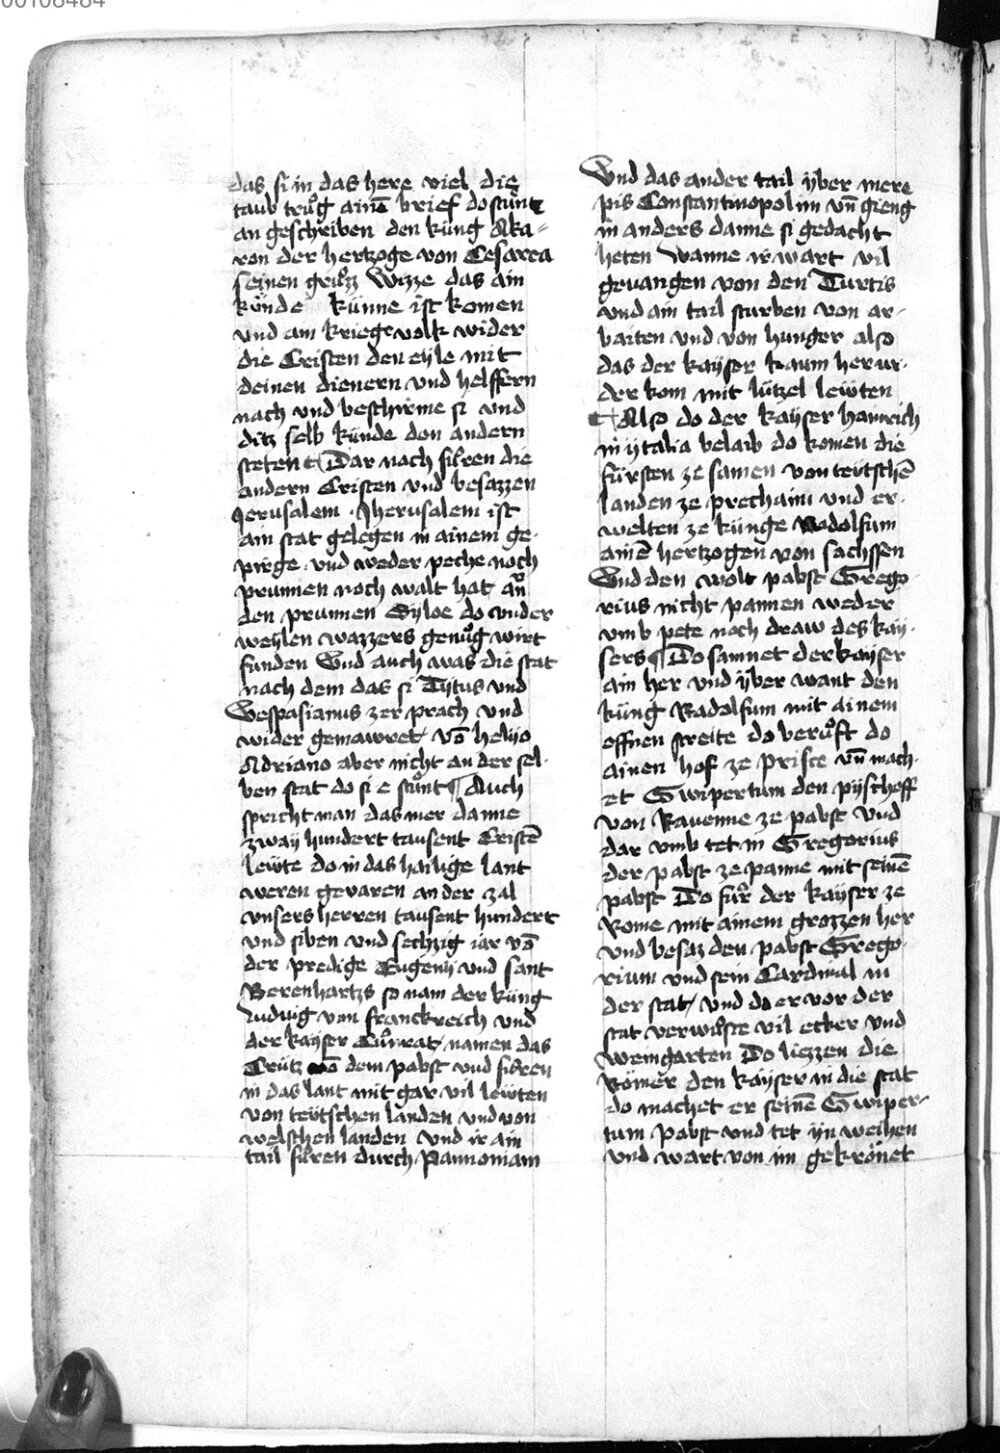 00108484
das si in das here viel die
taub trůg ainē brief do stůnt
an geschriben den kung Aka-
ron der hertzoge von Cesarea
seinen grůzz Wizze das ain
künde künne ist komen
und ain kriege volk wider
die Cristen den eyle mit
deinen dienern und helffern
nach und beschirme si und
ditz selb künde don andern
steten Dar nach fůren die
andern Cristen und besazzen
Jerusalem . Jherusalem ist
ain stat gelegen in ainem ge-
pirge . und weder peche noch
prunnen noch walt hat an
den prunnen Syloe do under
weylen wazzers genůg wirt
funden Und auch was die stat
nach dem das si Tytus und
Vespasianus zer prach und
wider gemawret / vō helyo
Adriano aber nicht an der sel-
ben stat do si e stůnt Auch
spricht man das mer danne
zway hundert tausent Cristē
lewte do in das hailige lant
weren gevaren an der zal
unsers herren tausent hundert
und siben und sechzig iar vō
der predige Eugenij und sant
Berenhartzs so nam der küng
ludwig von franckreich und
der kayser Cůnrat / namen das
Crütz vō dem pabst und fůren
in das lant mit gar vil lewten
von teutschen landen und von
welschen landen und ir ain
tail fůren durch Pannoniam
Und das ander tail über mere
pis Constantinopolim uñ gieng
in anders danne si gedacht
heten Wanne ir wart vil
gevangen von den Turcis
und ain tail sturben von ar-
baiten und von hunger also
das der kayser kaum her wi-
der kom mit lützel lewten
Also do der kayser hainrich
in ytalia belaib do komen die
fürsten ze samen von teutschē
landen ze prechaim und er-
welten ze künge Radolfum
ainē hertzogen von sachssen
Und den wolt pabst Grego-
rius nicht pannen weder
umb pete noch draw des kay-
sers Do samnet der kayser
ain her und über want den
küng Radolfum mit ainem
offnen streite do berůft do
ainen hof ze prisce uñ mach-
et Gwipertum den pyschoff
von Ravenne ze pabst Und
dar umb tet in Gregorius
der pabst ze panne mit seinē
pabst Do fůr der kayser ze
Rome mit ainem grozzen her
und besaz den pabst Grego-
rium und sein Cardinal in
der stat / und do er vor der
stat verwůste vil ecker und
weingarten Do liezzen die
Römer den kayser in die stat
do machet er seinē Gwiper-
tum pabst und tet yn weihen
und wart von im gekrönet